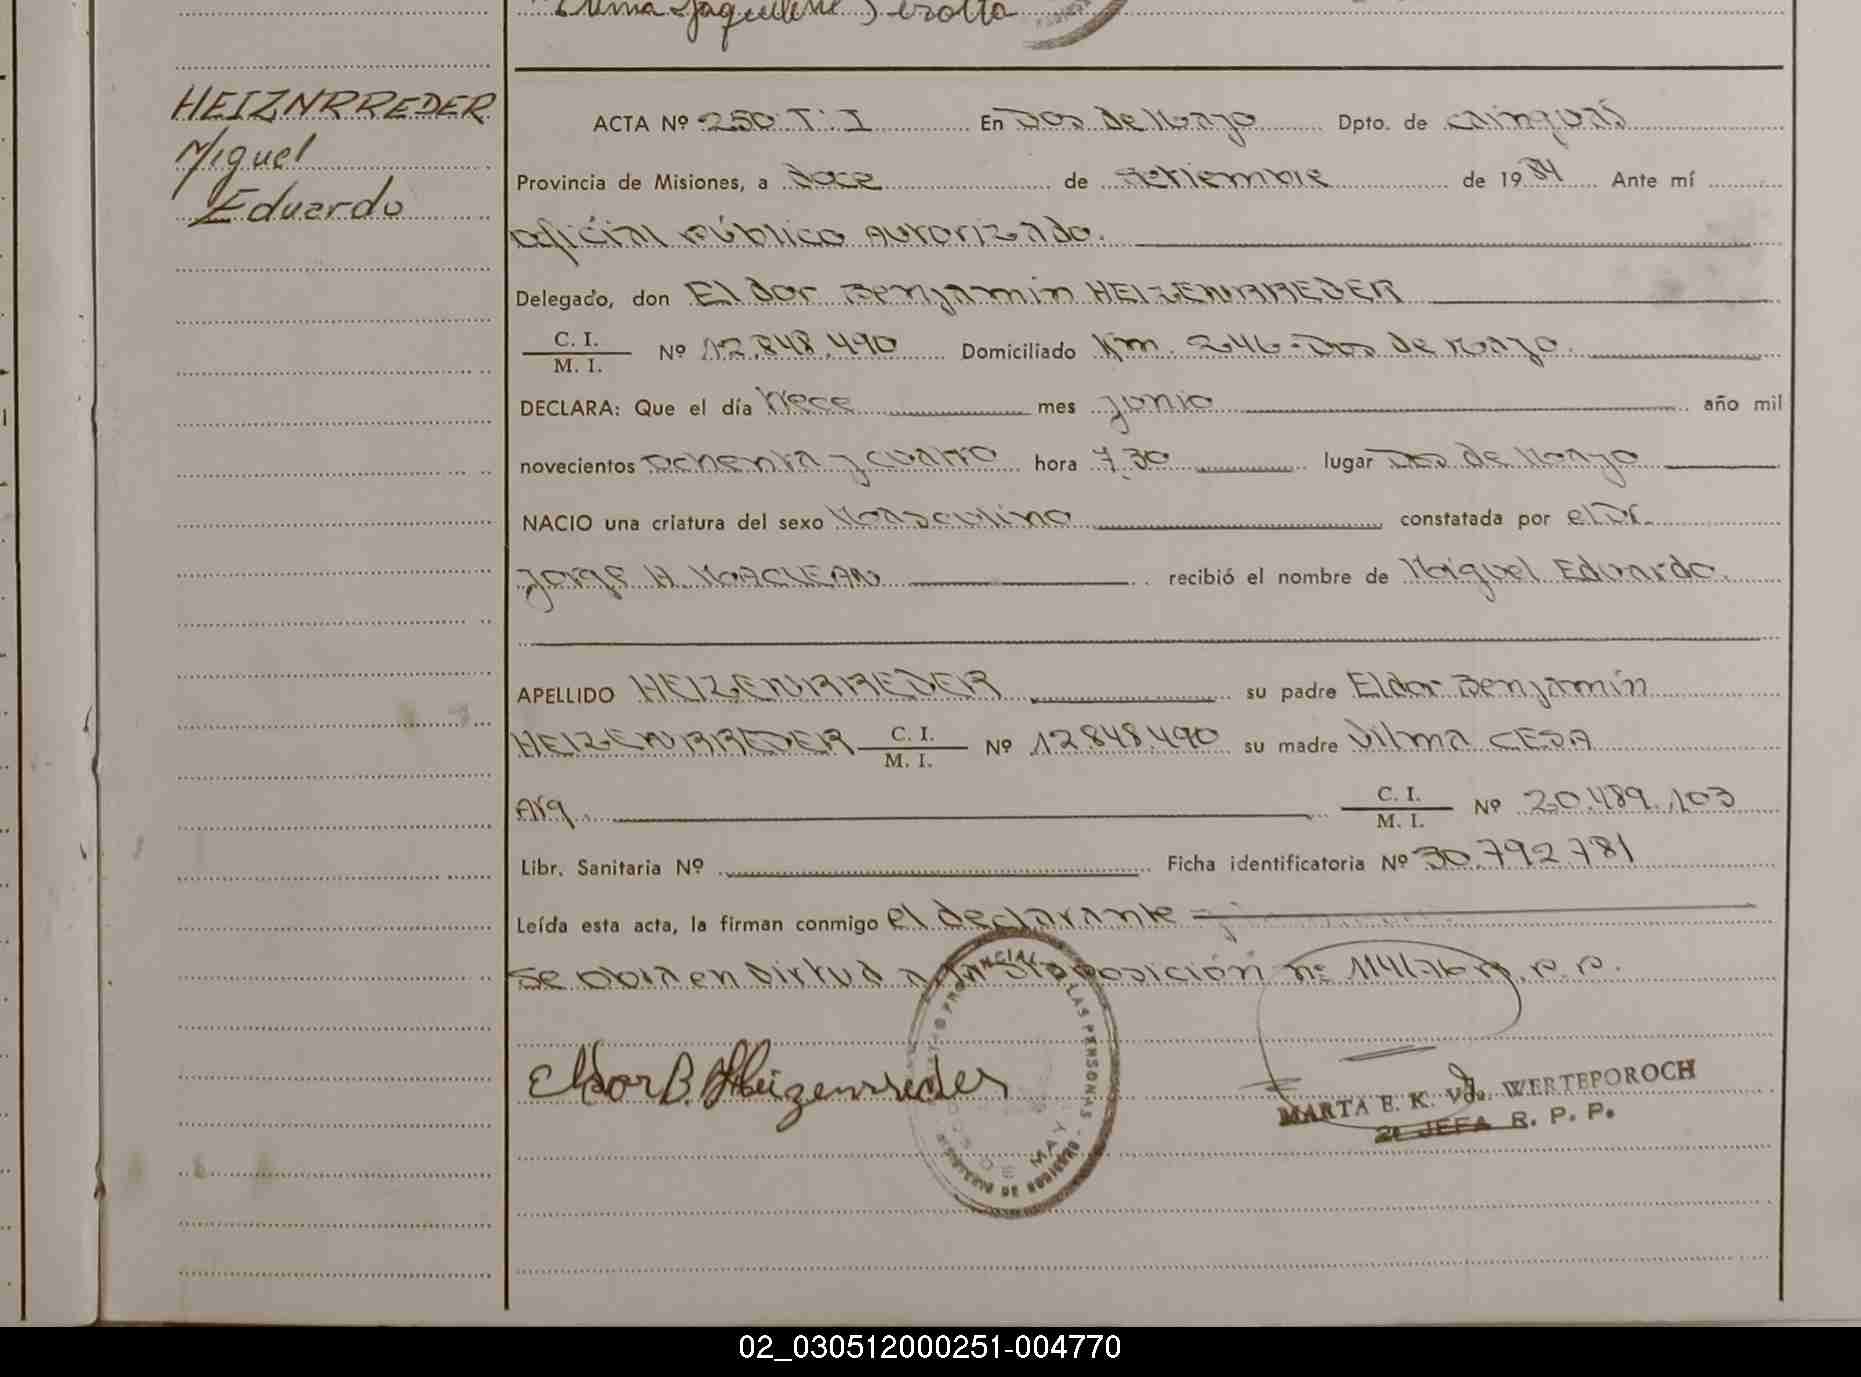 HEIZNRREDER
Miguel
Eduardo
ACTA Nº 250 T: I En Dos de Mayo Dpto. de Cainguás
Provincia de Misiones, a doce de setiembre de 1984 Ante mí
oficial público Autorizado.
Delegado, don Eldor Benjamin HEIZENRREDER
C. I.
M. I. Nº 12.848.490 Domiciliado Km. 246-Dos de Mayo.
DECLARA: Que el día trece mes junio año mil
novecientos ochenta y cuatro hora 7.30 lugar Dos de Mayo
NACIO una criatura del sexo Masculino constatada por el Dr.
Jorge H. MACLEAN recibió el nombre de Miguel Eduardo.
APELLIDO HEIZENRREDER su padre Eldor Benjamín
HEIZENRREDER C. I.
M. I. Nº 12.848.490 su madre Vilma CESA
Arg. C. I.
M. I. Nº 20.489.103
Libr. Sanitaria Nº Ficha identificatoria Nº 30.792.781
Leída esta acta, la firman conmigo el declarante
se obra en virtud a la disposición nº 1141-76 R.P.P.
Eldor B. Heizenrreder
MARTA E. K. Vda. WERTEPOROCH
2ª JEFA R. P. P.
02_030512000251-004770